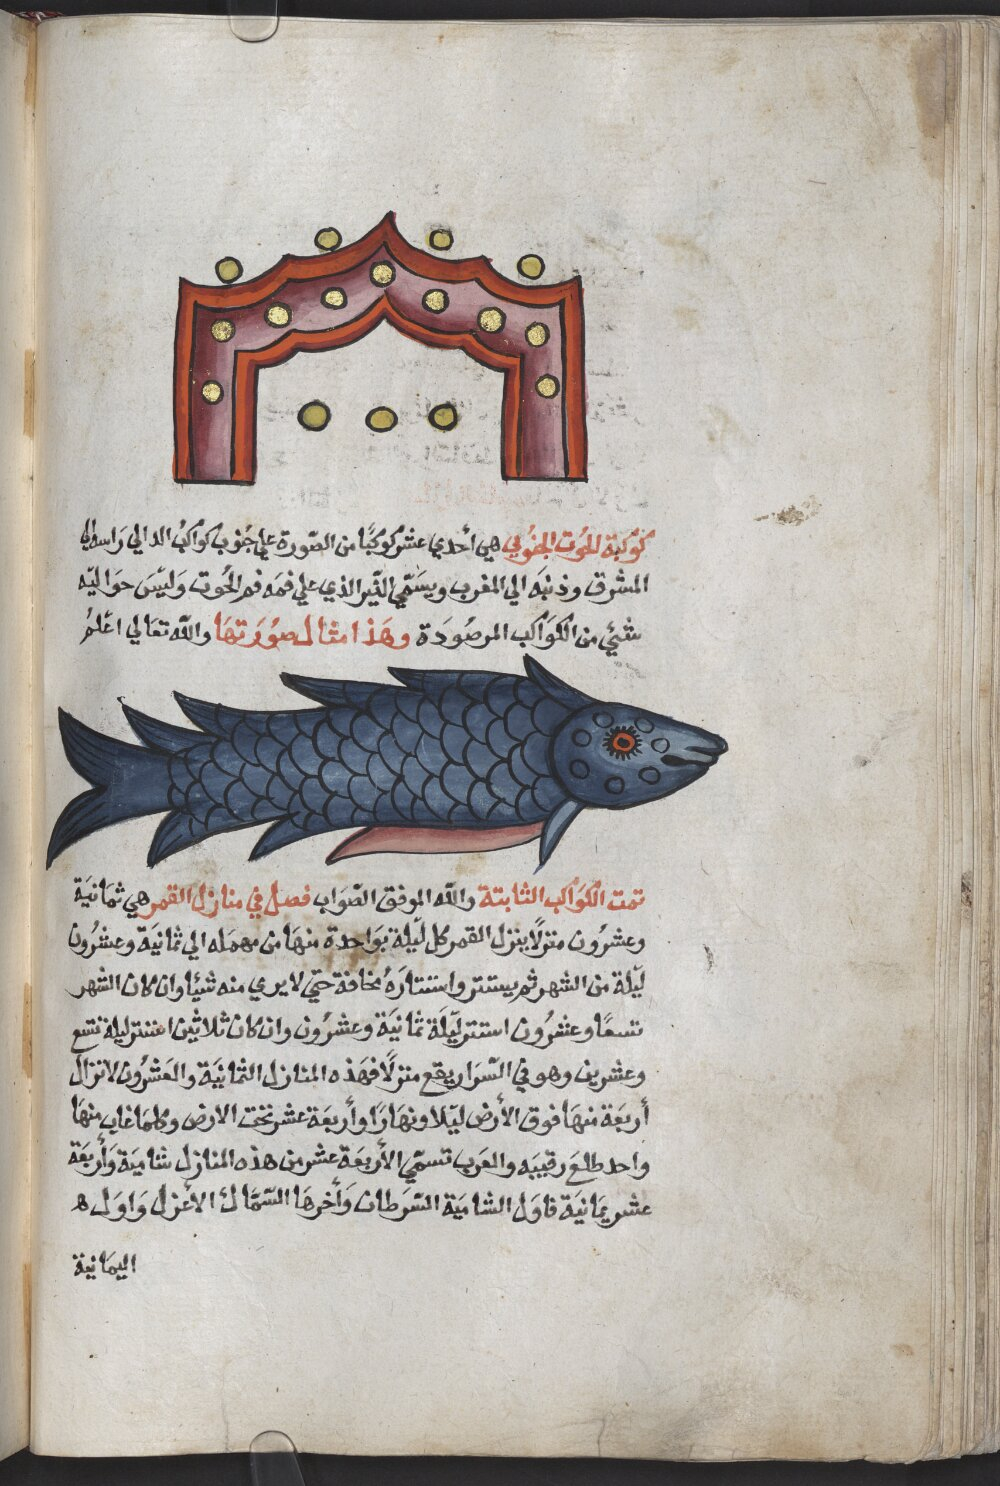 كوكبة الحُوت الجنُوبي هي أحدي عشر كوكبًا من الصّورة علي جنُوب كواكب الدالي رَاسه الي
المشرق وذنبَه الي المغرب ويسَمّي النّير الذي علي فمَه فم الحُوت وَليسَ حوَاليْه
شئي من الكوَاكب المرصُودَة وهَذا مثال صُورَتهَا والله تعَالي اعْلمُ
تمت الكوَاكب الثابتة والله الموفق الصّوَاب فصل في منازل القمر هي ثمَانيَة
وعشرُون منزلًا ينزل القمر كل ليْلة بوَاحدة منهَا من مهمَله الي ثمانيَة وعشرُون
ليْلة من الشهر ثم يستتر واستتارَهُ مخافة حتي لا يري منه شئيا وان كان الشهر
تسعًا وعشرُون استتر ليْلَة ثمانيَة وعشرُون وان كان ثلاثين استتر ليلة تسع
وعشرين وهو في السّرَار يقع منزلًا فهَذه المنازل الثمانيَة والعَشرُون لا تزال
أربعَة منهَا فوق الأرض ليْلا ونهَارًا وأربعَة عشر تحت الارض وكلمَا غاب منهَا
واحد طلعَ رقيبَه والعَرب تسمّي الأربعَة عشر من هذه المنازل شاميَة وَأربعَة
عشر يمَانيَة فاوَل الشاميَة السّرَطان وَأخرهَا السّمَاك الأعزل وَاوَل ه
اليمَانية